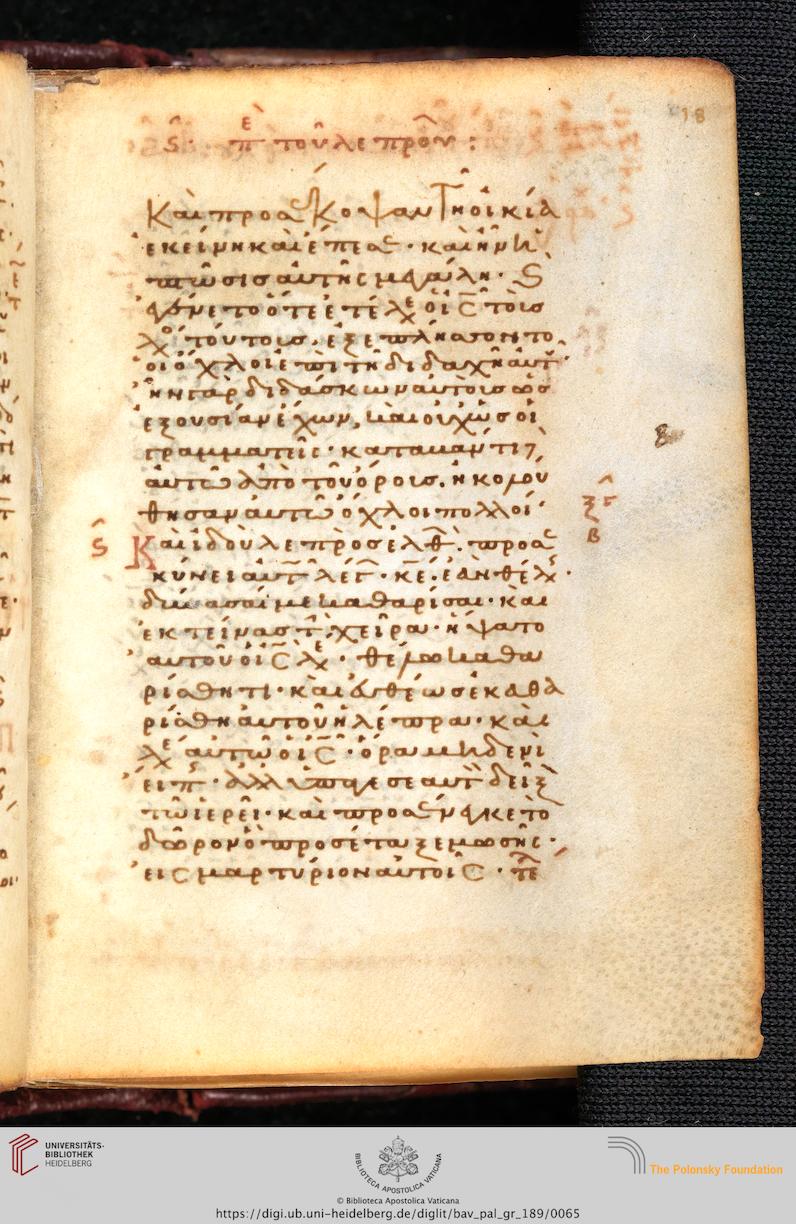 18
ς̂· π̅ὲ τοῦ λεπροῦ :
Καὶ προσκοψαν τῆ οἰκία
ἐκείνη καὶ ἔπεσ· καὶ ἦν ἡ
πτῶσισ αὐτῆς μεγάλη· ϛ
ἐγένετο ὅτε ἐτέλεσεν ὁ ι̅ς̅ τοὺσ
λόγ τούτουσ. ἐξεπλήσσοντο
οἱ ὄχλοι ἐπὶ τῆ διδαχῆ αὐτ
ἦν γὰρ διδάσκων αὐτοὺσ ὡσ
ἐξουσίαν ἔχων, καὶ οὐχ ὡσ οἱ
γραμματεῖς· καταβάντι
αὐτῶ ἀπὸ τοῦ ὄρουσ. ἠκολού
θησαν αὐτῶ ὄχλοι πολλοί·
ς̂ Καὶ ἰδοὺ λεπρὸσ ἐλθ. προσ
κύνει αὐτ λέγ· κ̅ε̅· ἐὰν θέλ·
δύνασαί με καθαρίσαι· καὶ
ἐκτείνασ τ̅ χεῖρα· ἥψατο
αὐτοῦ ὁ ι̅ς̅ λε· θέλω καθα
ρίσθητι· καὶ εὐθέωσ ἐκαθα
ρίσθη αὐτοῦ ἡ λέπρα· καὶ
λε αὐτῶ ὁ ι̅ς̅· ὅρα μηδενὶ
εἴπ· ἀλλ ὕπαγε σεαυτ δεῖξ
τῶ ἱερεῖ· καὶ προσένεγκε τὸ
δῶρον ὃ προσέταξε μωσῆς·
εἰς μαρτύριον αὐτοῖς· τε
UNIVERSITÄTS-
BIBLIOTHEK
HEIDELBERG
BIBLIOTECA APOSTOLICA VATICANA
The Polonsky Foundation
© Biblioteca Apostolica Vaticana
https://digi.ub.uni-heidelberg.de/diglit/bav_pal_gr_189/0065